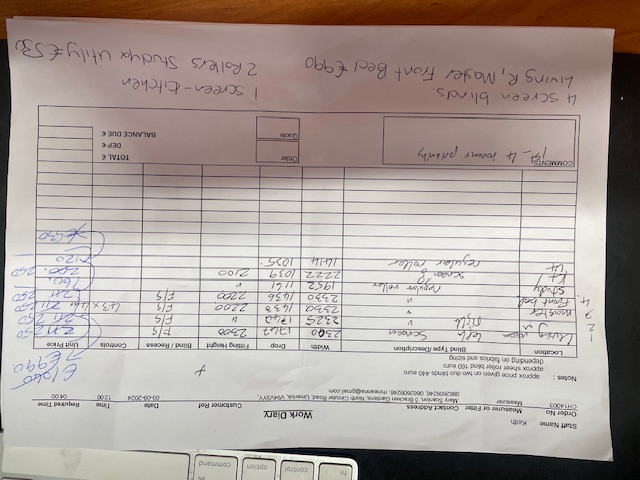 fn control option command
Work Diary
Staff Name Keith
Order No Measurer or Fitter Contact Address Customer Ref Date Time Required Time
CH14003 Measurer Mary Scanlon, 3 Bracken Gardens, North Circular Road, Limerick, V94V3YY. 03-09-2024 12:00 04:00
Notes : approx price given on duo blinds 440 euro
approx sheer roller 150 euro
depending on fabrics and sizing
£990
Location Blind Type /Description Width Drop Fitting Height Blind Recess Controls Unit Price
1 Living room left Screen 1742 2300 F/S 250
2 " Middle " 2325 1740 " F/S 250
3 master " 2330 1438 2200 F/S 250
4. Front bed " 2330 1436 2200 F/S 250
Study regular roller 1952 1161 "
Kit screen 2222 1039 2100 200. 250
Ut regular roller 1414 1035. 120
€530
COMMENTS Order TOTAL €
4 rooms priority DEP €
Quote BALANCE DUE €
4 screen blinds 1 screen - kitchen
Living R, Master Front Bed £990 2 Rollers Study x utility €530